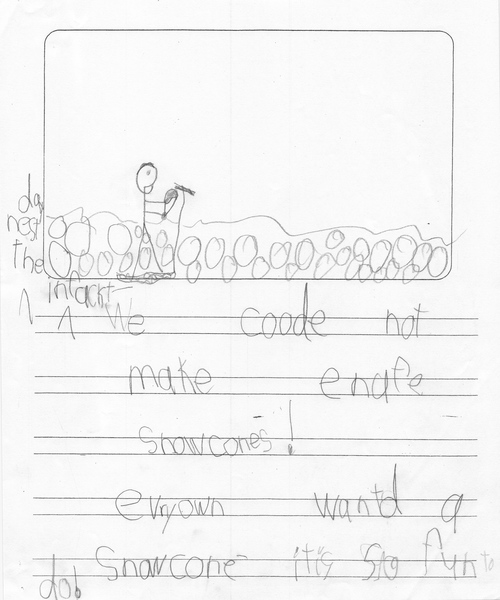 da
nest
the
infackt
We coode not
make enafe
Snowcones!
evryown wantd a
Snowcone itis So fun to
dob